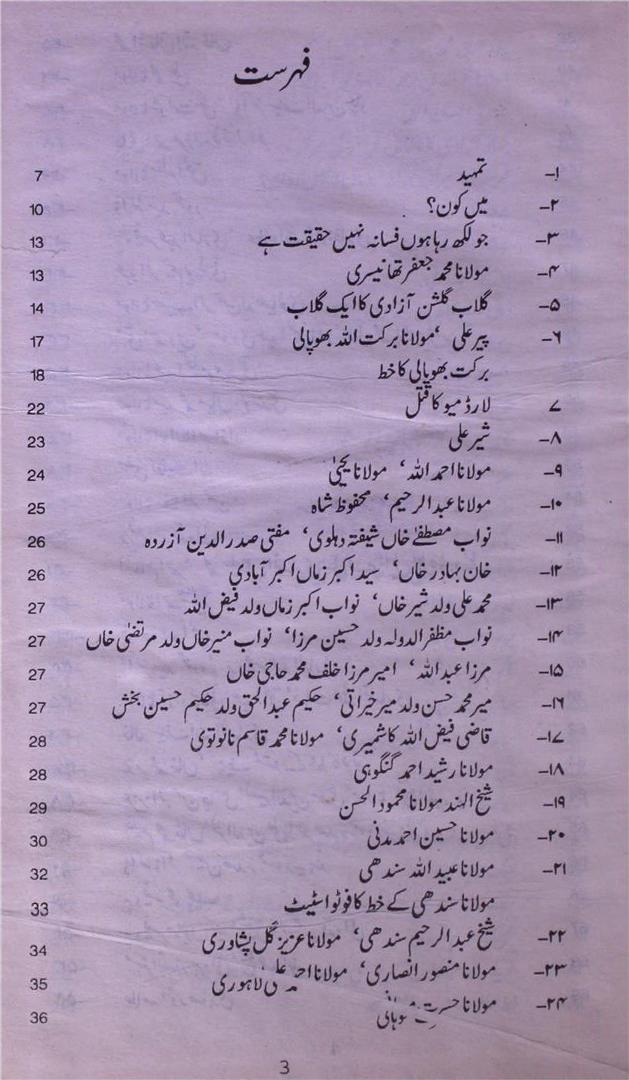 فہرست
۱- تمہید 7
۲- میں کون؟ 10
۳- جو لکھ رہا ہوں فسانہ نہیں حقیقت ہے 13
۴- مولانا محمد جعفر تھانیسری 13
۵- گلاب گلشن آزادی کا ایک گلاب 14
۶- پیر علی، مولانا برکت اللہ بھوپالی 17
برکت بھوپالی کا خط 18
۷ لارڈ میو کا قتل 22
۸- شیر علی 23
۹- مولانا احمد اللہ، مولانا یحیٰی 24
۱۰- مولانا عبد الرحیم، محفوظ شاہ 25
۱۱- نواب مصطفٰے خاں شیفتہ دہلوی، مفتی صدر الدین آزردہ 26
۱۲- خان بہادر خاں، سید اکبر زماں اکبر آبادی 26
۱۳- محمد علی ولد شیر خاں، نواب اکبر زماں ولد فیض اللہ 27
۱۴- نواب مظفر الدولہ ولد حسین مرزا، نواب منیر خاں ولد مرتضٰی خاں 27
۱۵- مرزا عبد اللہ، امیر مرزا خلف محمد حاجی خاں 27
۱۶- میر محمد حسن ولد میر خیراتی، حکیم عبد الحق ولد حکیم حسین بخش 27
۱۷- قاضی فیض اللہ کاشمیری، مولانا محمد قاسم نانوتوی 28
۱۸- مولانا رشید احمد گنگوہی 28
۱۹- شیخ الہند مولانا محمود الحسن 29
۲۰- مولانا حسین احمد مدنی 30
۲۱- مولانا عبید اللہ سندھی 32
مولانا سندھی کے خط کا فوٹو اسٹیٹ 33
۲۲- شیخ عبد الرحیم سندھی، مولانا عزیز گل پشاوری 34
۲۳- مولانا منصور انصاری، مولانا احمد علی لاہوری 35
۲۴- مولانا حسرت موہانی 36
3